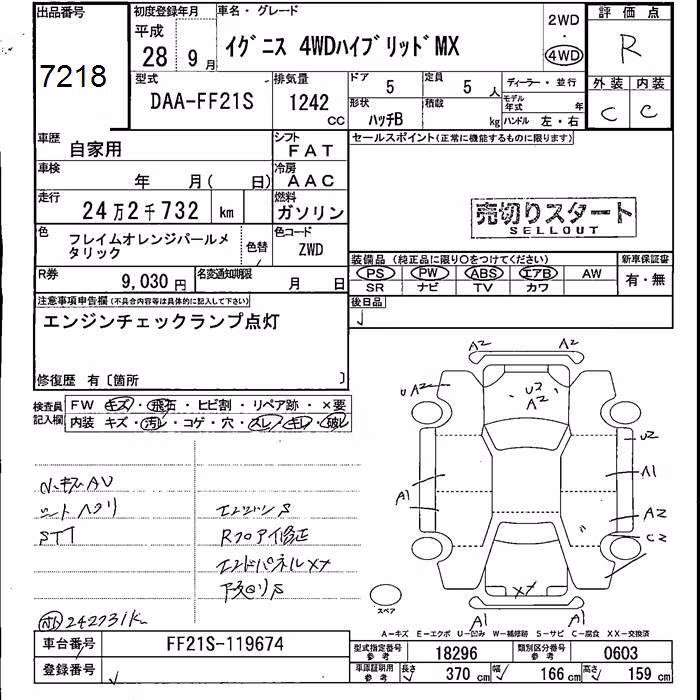 出品番号 初度登録年月 車名・グレード 2WD 評価点
7218 平成 28 年 9 月 イグニス 4WDハイブリッドMX ・ 4WD R
型式 排気量 ドア 5 定員 5 人 ディーラー・並行 外装 内装
DAA-FF21S 1242 cc 形状 ハッチB 積載 kg モデル年式 年 ハンドル 左・右 C C
車歴 自家用 シフト FAT セールスポイント(正常に機能するものに限ります)
車検 年 月( 日) 冷房 AAC
走行 24万2千732 km 燃料 ガソリン 売切りスタート
SELLOUT
色 フレイムオレンジパールメタリック 色替 色コード ZWD
装備品 (純正品に限り○をつけてください) 新車保証書
PS PW ABS エアB AW 有・無
SR ナビ TV カワ
R券 9,030円 名変通知期限 月 日 後日品
注意事項申告欄(不具合内容等は具体的に記入して下さい)
エンジンチェックランプ点灯
修復歴 有〔箇所 〕
検査員記入欄 FW キズ・飛石・ヒビ割・リペア跡・×要
内装 キズ・汚レ・コゲ・穴・スレ・キレ・破レ
A2 A2
UA2 U2
A2
U2
A1
A1 A2
C2
XX
A1 A1
小キズAU
シートヘタリ エンジンS
STT Rフロア修正
エンドパネルXX
下廻りS
242731K
スペア
A-キズ E-エクボ U-凹み W-補修跡 S-サビ C-腐食 XX-交換済
車台番号 FF21S-119674 型式指定番号 参考 18296 類別区分番号 参考 0603
登録番号 車庫証明用 参考 長さ 370 cm 幅 166 cm 高さ 159 cm